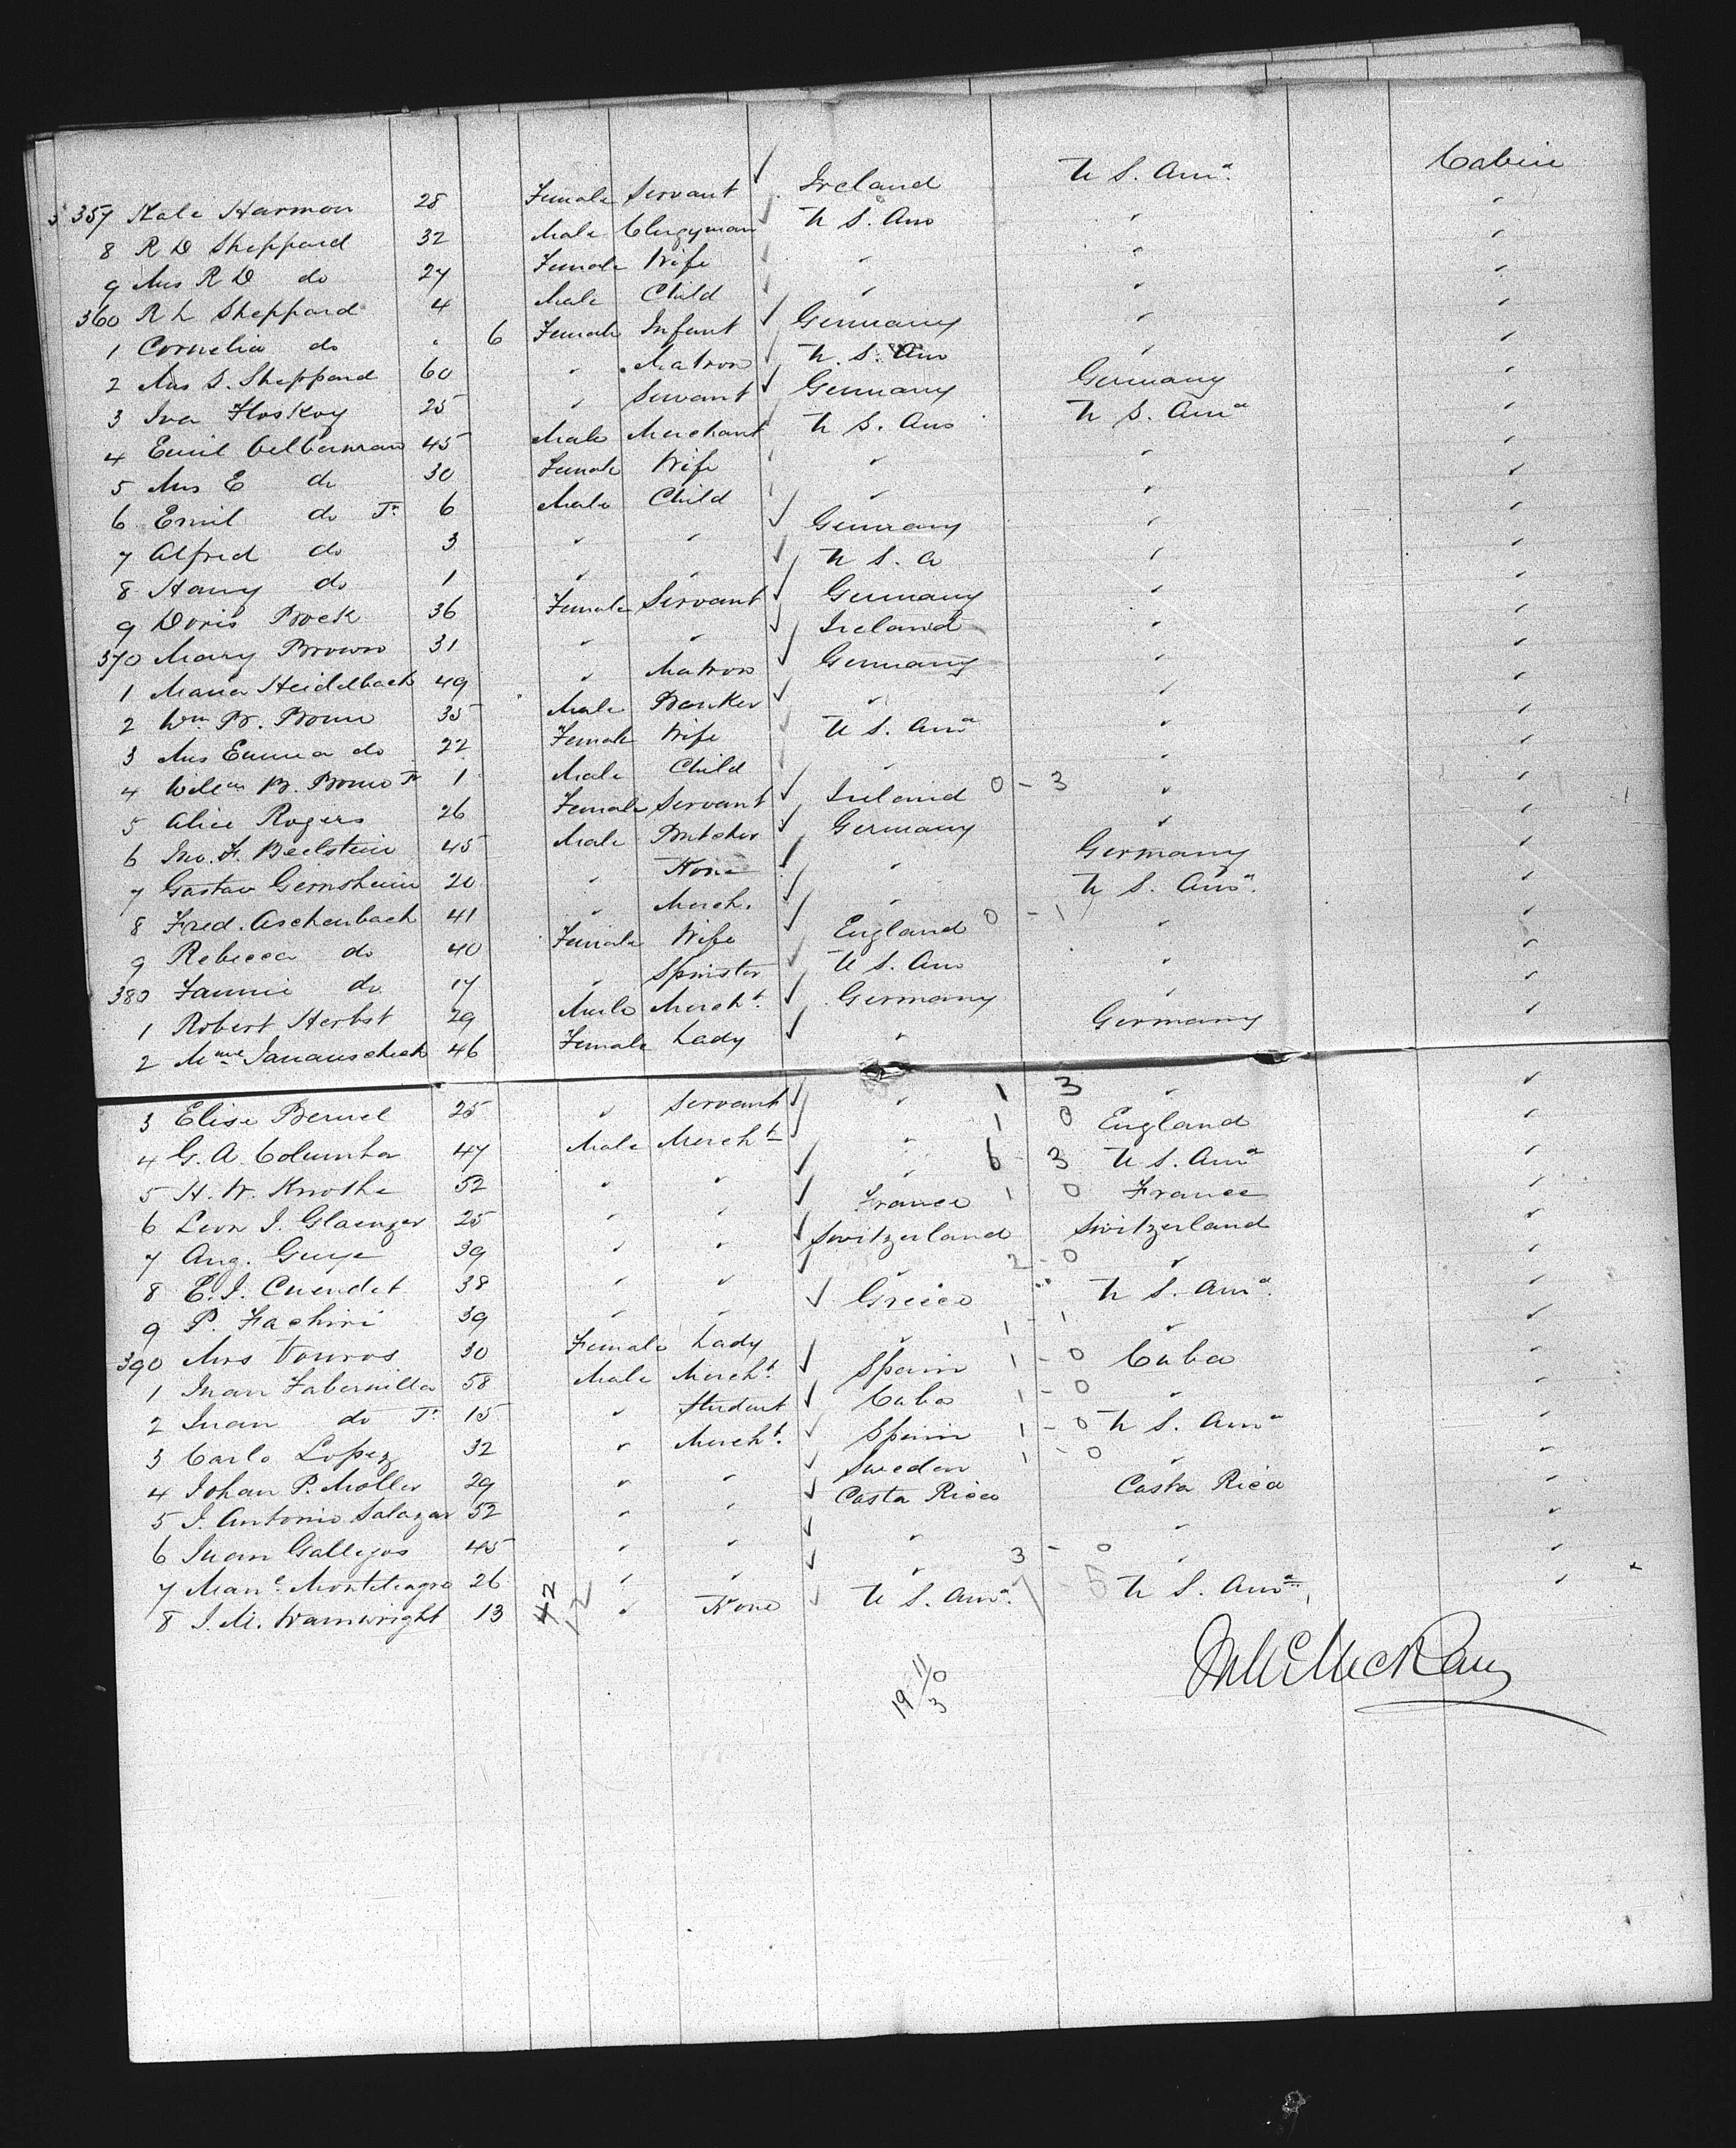 357 Kate Harmon 28 Female Servant ✓ Ireland U S. Ama Cabin
8 R D Sheppard 32 Male Clergyman U S. Am " "
9 Mrs R D do 27 Female Wife " " "
360 R L Sheppard 4 Male Child " " "
1 Cornelia do " 6 Female Infant ✓ Germany " "
2 Mrs S. Sheppard 60 " Matron ✓ U. S. Am " "
3 Iva 25 " Servant ✓ Germany Germany "
4 Emil 45 Male Merchant U S. Am U S. Ama "
5 Mrs E do 30 Female Wife " " "
6 Emil do Jr 6 Male Child " " "
7 Alfred do 3 " " ✓ Germany " "
8 Harry do 1 " " ✓ U S. A " "
9 Doris Brock 36 Female Servant ✓ Germany " "
370 Mary Brown 31 " " ✓ Ireland " "
1 Maria Heidelbach 49 " Matron ✓ Germany " "
2 Wm B. 35 Male Banker ✓ " " "
3 Mrs Emma do 22 Female Wife U S. Ama " "
4 B. Jr 1 Male Child " " "
5 Alice Rogers 26 Female Servant ✓ Ireland 0 - 3 " "
6 Jno. F. Beilstein 45 Male Butcher ✓ Germany " "
7 Gustav Gernsheim 20 " None ✓ " Germany "
8 Fred. Aschenbach 41 " Merch. ✓ " U S. Ama "
9 Rebecca do 40 Female Wife ✓ England 0 - 1 " "
380 Fannie do 17 " Spinster ✓ U S. Am " "
1 Robert Herbst 29 Male Mercht. ✓ Germany " "
2 Mme Janauscheck 46 Female Lady ✓ " Germany "
3 Elise 25 " Servant ✓ " 1 3 " "
4 G. A. Columba 47 Male Mercht ✓ " 1 0 England "
5 H. W. Knothe 52 " " ✓ " 6 - 3 U S. Ama "
6 Leon J. Glaenzer 25 " " ✓ France 1 0 France "
7 Aug. 39 " " ✓ Switzerland Switzerland "
8 E. J. Cuendet 38 " " ✓ " 2 - 0 " "
9 P. Fachiri 39 " " ✓ Greece U S. Ama. "
390 Mrs Vouros 30 Female Lady " 1 - 1 " "
1 Juan Tabernilla 58 Male Mercht. ✓ Spain 1 - 0 Cuba "
2 Juan do Jr 15 " Student ✓ Cuba 1 - 0 " "
3 Carlo Lopez 32 " Mercht. ✓ Spain 1 - 0 U S. Ama "
4 Johan P. Moller 29 " " ✓ Sweden 1 - 0 " "
5 J. Antonio Salazar 52 " " ✓ Costa Rica Costa Rica "
6 Juan Gallegos 45 " " ✓ " " "
7 Manl. Montealegro 26 " " ✓ " 3 - 0 " "
8 J. M. Wainwright 13 42 12 " None ✓ U S. Ama. 7 - 5 U S. Ama "
19 11/0 3